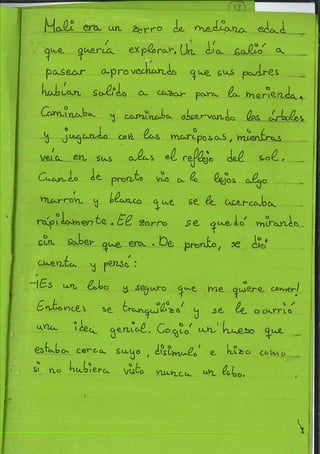 13
Mali era un zorro de mediana edad
que quería explorar. Un día salió a
pasear aprovechando que sus padres
habían salido a cazar para la merienda.
Caminaba y caminaba observando los árboles
y jugando con las mariposas, mientras
veía en sus alas el reflejo del sol.
Cuando de pronto vio a lo lejos algo
marrón y blanco que se le acercaba
rápidamente. El zorro se quedó mirando
sin saber que era. De pronto, se dió
cuenta y pensó:
-¡Es un lobo y seguro que me quiere comer!
Entonces se tranquilizó y se le ocurrió
una idea genial. Cogió un hueso que
estaba cerca suyo, disimuló e hizo como
si no hubiera visto nunca un lobo.